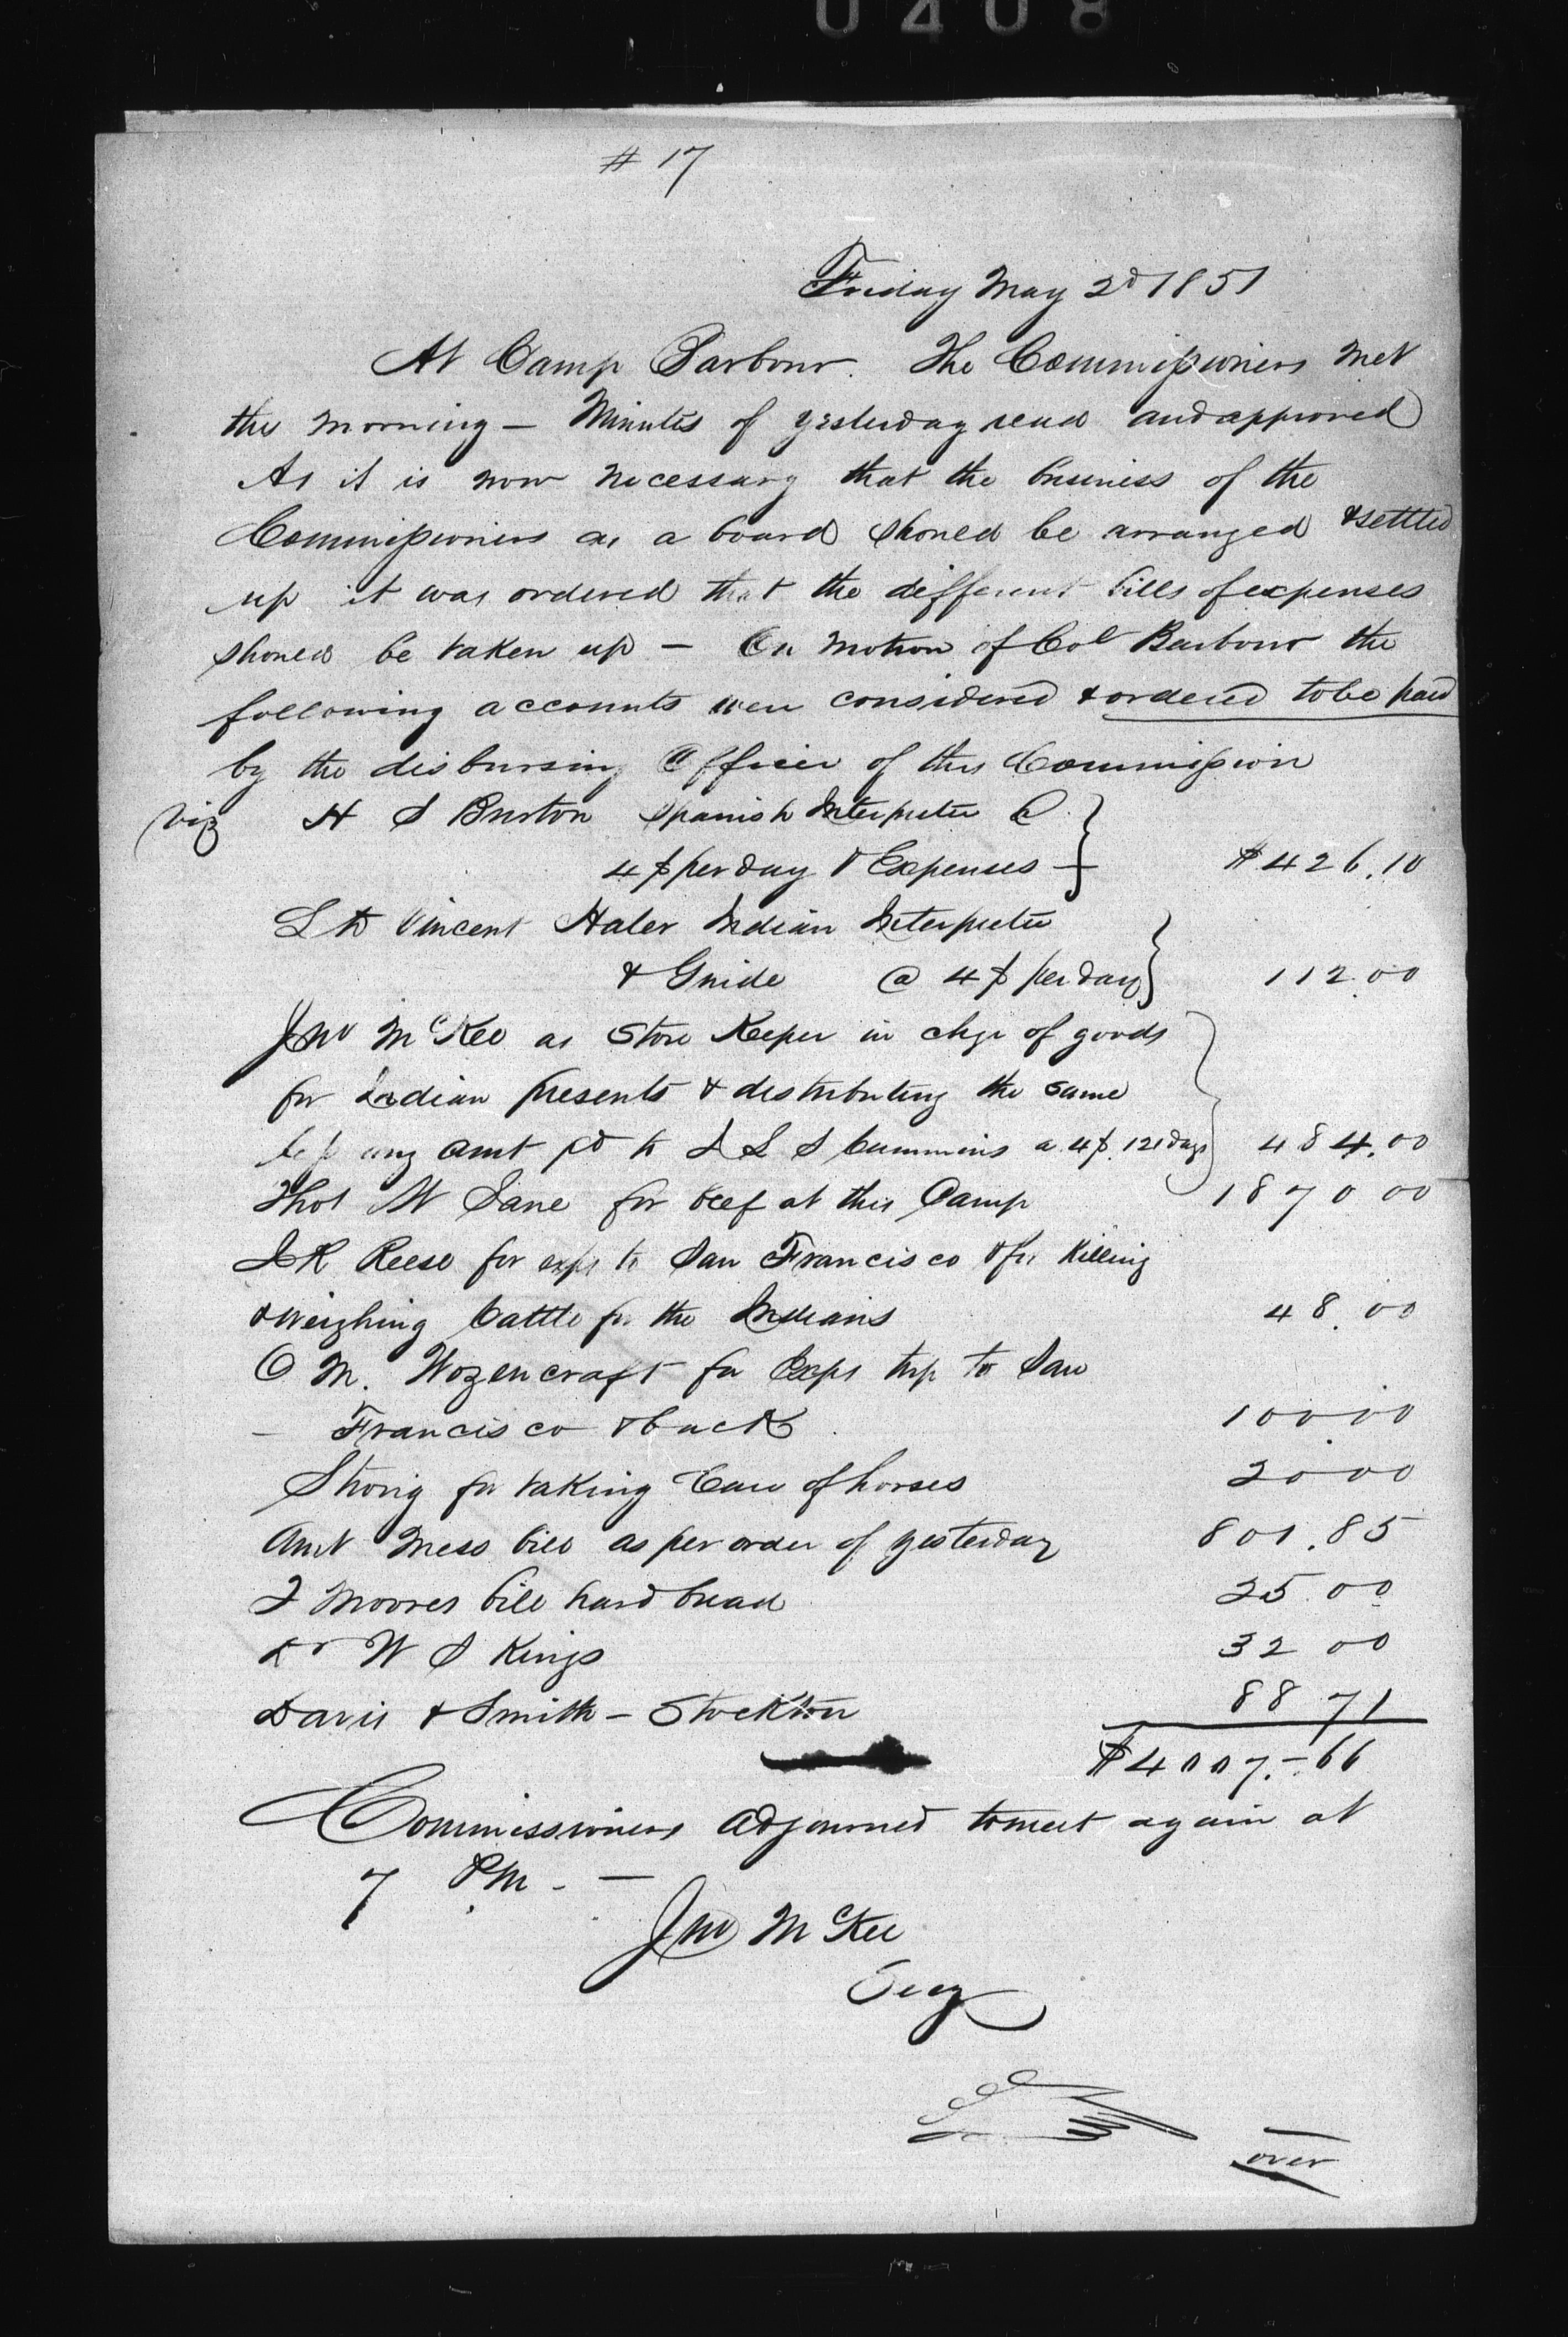 0408
# 17
Friday May 2d 1851
At Camp Barbour. The Commissioners met
the morning – Minutes of yesterday read and approved
As it is now necessary that the business of the
Commissioners as a board should be arranged & settled
up it was ordered that the different bills of expenses
should be taken up – On motion of Col Barbour the
following accounts were considered & ordered to be paid
by the disbursing Officer of this Commission
Viz H S Burton Spanish Interpreter @
4$ per day & Expenses – $426.10
Vincent Haler Indian Interpreter
& Guide @ 4$ per day 112.00
Jno McKee as Store Keeper in chge of goods
for Indian presents & distributing the same
amt pd to S Cummins a 4$ 121 days 484.00
Thos W Lane for beef at this Camp 1870 00
Reese for exps to San Francisco & for killing
& weighing Cattle for the Indians 48.00
O M. Wozencraft for Exps trip to San
– Francisco & back 100.00
Strong for taking Care of horses 20.00
Amt Mess bill as per order of yesterday 801.85
Moores bill hard bread 25.00
Dr W S Kings 32 00
Davis & Smith – Stockton 88 71
$4007.–66
Commissioners adjourned to meet again at
7 PM. –
Jno McKee
Secy
over